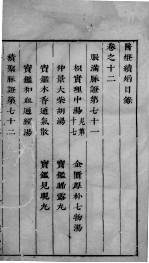 醫燈續焰目錄
卷之十二
脹滿脉證第七十一
枳實理中湯 見第十七
金匱厚朴七物湯
仲景大柴胡湯
寶鑑木香通氣散
寶鑑鱉露丸
寶鑑和血通經湯
寶鑑見晛丸
積聚脉證第七十二